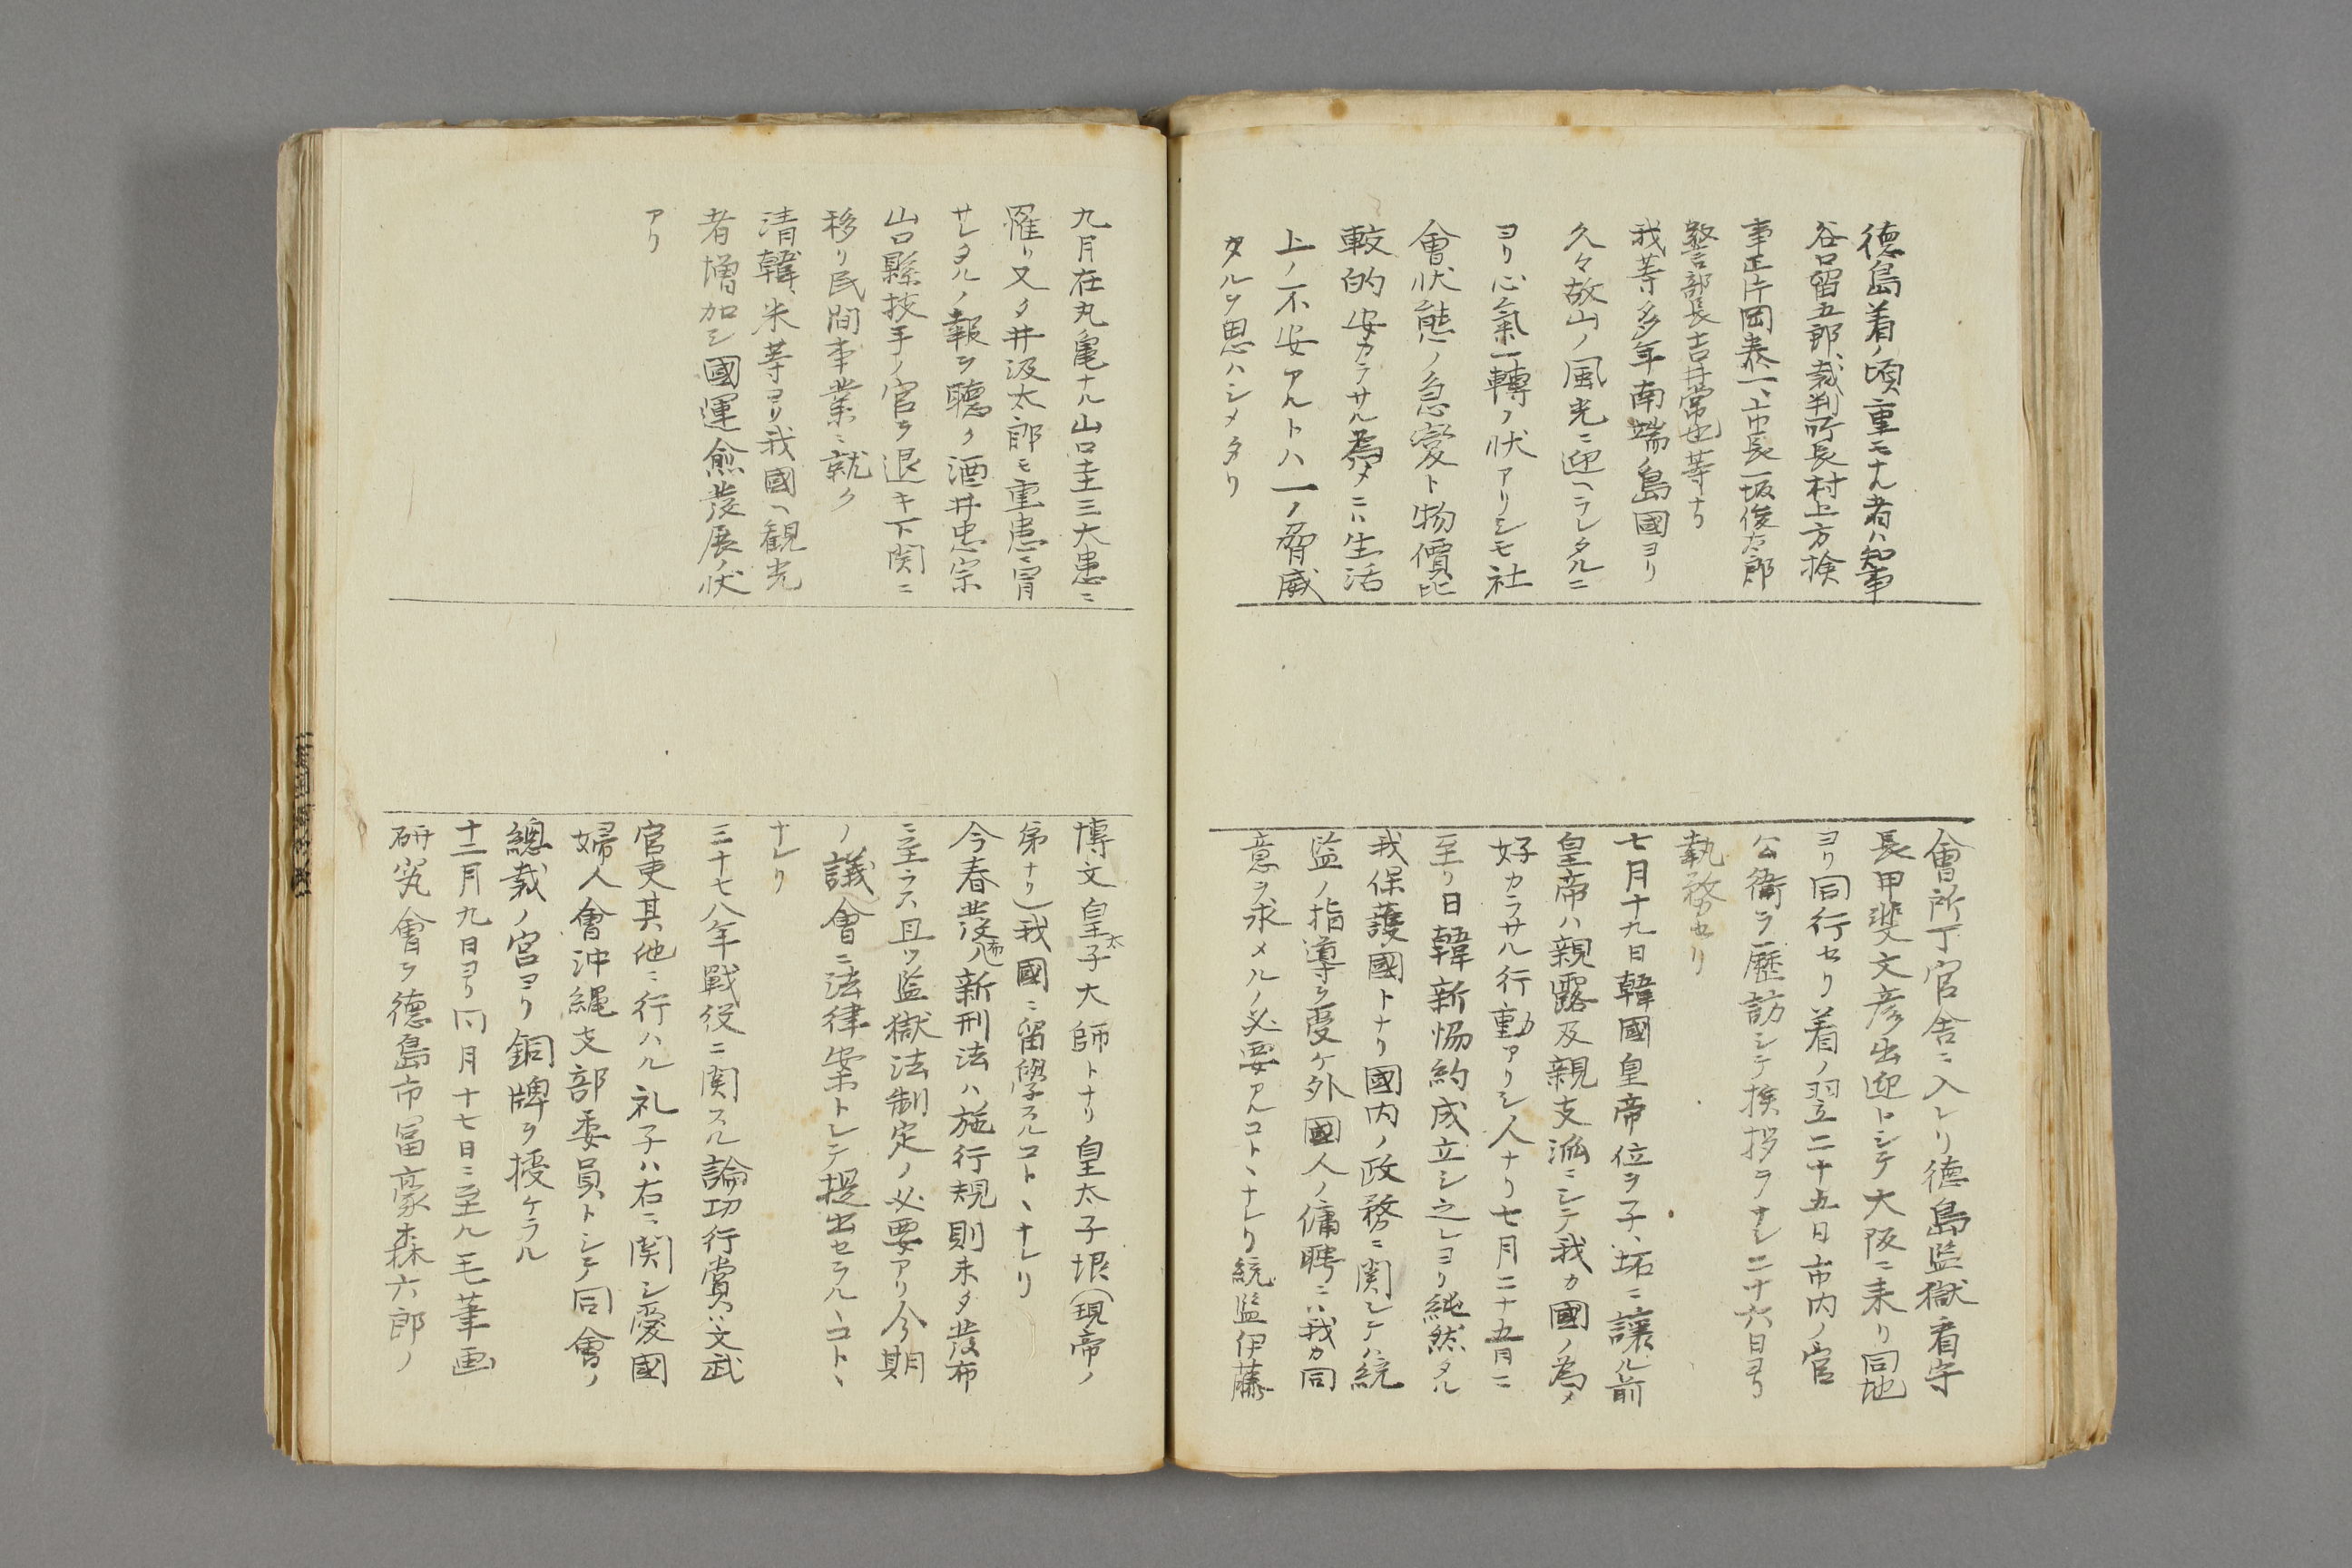 徳島着ノ頃重モナル者ハ知事
谷口留五郎裁判所長村上方検
事正片岡恭一、市長一坂俊太郎
警部長吉井常也等ナリ
我等多年南端ノ島國ヨリ
久々故山ノ風光ニ迎ヘラレタルニ
ヨリ心氣一轉ノ状アリシモ社
會状態ノ急變ト物價比
較的安カラサル為メニハ生活
上ノ不安アルトハ一ノ脅威
タルヲ思ハシメタリ
會所丁官舎ニ入レリ徳島監獄看守
長甲斐文彦出迎トシテ大阪ニ来リ同地
ヨリ同行セリ着ノ翌二十五日市内ノ官
公衛ヲ歴訪シテ挨拶ヲナシ二十六日ヨリ
執務セリ
七月十九日韓國皇帝位ヲ子、坧ニ譲ル前
皇帝ハ親露及親支派ニシテ我カ國ノ為メ
好カラサル行動アリシ人ナリ七月二十五日ニ
至リ日韓新協約成立シ之レヨリ純然タル
我保護國トナリ國内ノ政務ニ関シテハ統
監ノ指導ヲ受ケ外國人ノ傭聘ニハ我カ同
意ヲ求メルノ必要アルコトヽナレリ統監伊藤
九月在丸亀ナル山口圭三大患ニ
罹リ又タ井汲太郎モ重患ニ冐
サレタルノ報ヲ聴ク酒井忠宗
山口縣技手ノ官ヲ退キ下関ニ
移リ民間事業ニ就ク
清韓、米等ヨリ我國ヘ観光
者増加シ國運愈發展ノ状
アリ
博文皇太子大師トナリ皇太子垠(現帝ノ
弟ナリ)我國ニ留學スルコトヽナレリ
今春發布ノ新刑法ハ施行規則未タ發布
ニ至ラス且ツ監獄法制定ノ必要アリ今期
ノ議會ニ法律案トシテ提出セラルヽコトヽ
ナレリ
三十七八年戰役ニ関スル論功行賞ハ文武
官吏其他ニ行ハル礼子ハ右ニ関シ愛國
婦人會沖縄支部委員トシテ同會ノ
總裁ノ宮ヨリ銅牌ヲ授ケラル
十二月九日ヨリ同月十七日ニ至ル毛筆画
研究會ヲ徳島市冨豪森六郎ノ